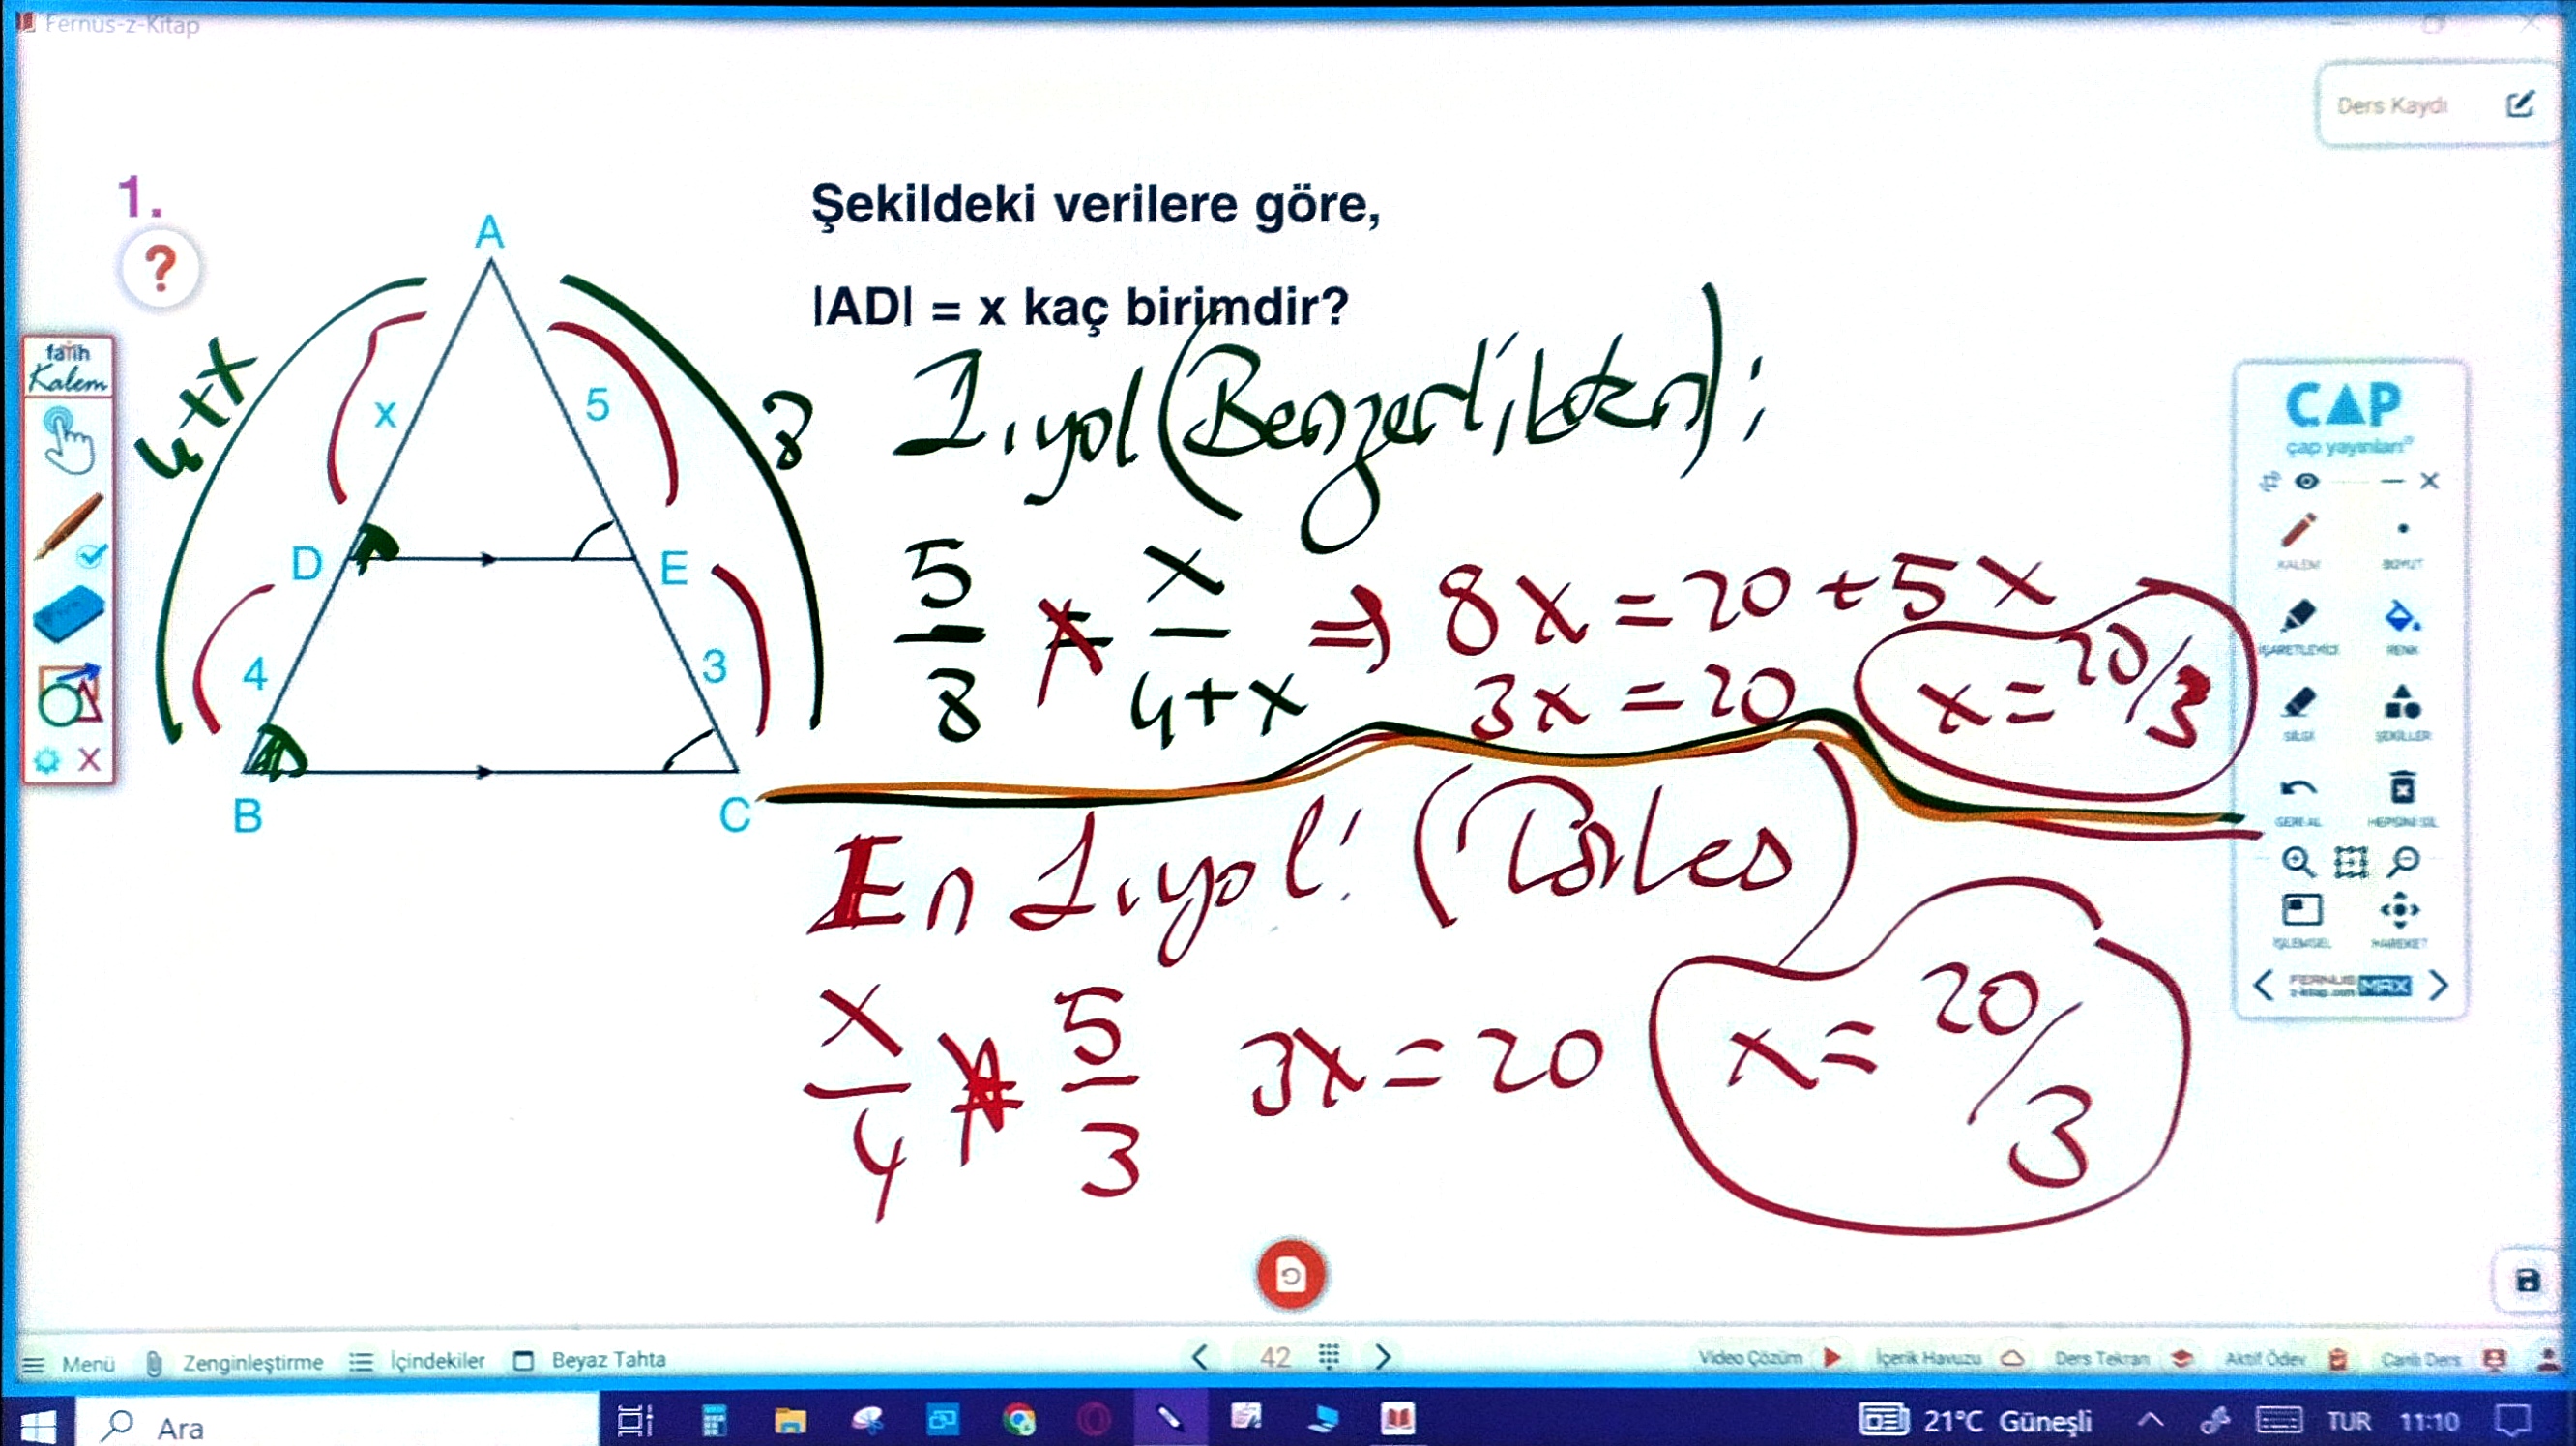 Fernus-z-Kitap
Ders Kaydı
1.
?
Şekildeki verilere göre,
|AD| = x kaç birimdir?
A
x
5
D
E
4
3
B
C
4+x
8
fatih
Kalem
1.yol (Benzerlikten):
5/8 = x/4+x ⇒ 8x = 20 + 5x
3x = 20
x = 20/3
En 1.yol: (Tales)
x/4 = 5/3 3x = 20 x = 20/3
ÇAP
çap yayınları
KALEM BOYUT
İŞARETLEYİCİ RENK
SİLGİ ŞEKİLLER
GERİ AL HEPSİNİ SİL
İŞLEMSEL HAREKET
FERNUS
z-kitap.com MAX
Menü Zenginleştirme İçindekiler Beyaz Tahta 42 Video Çözüm İçerik Havuzu Ders Tekrarı Aktif Ödev Canlı Ders
Ara 21°C Güneşli TUR 11:10